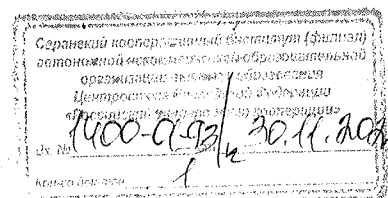 Саранский кооперативный институт (филиал)
автономной некоммерческой образовательной
организации высшего образования
Центросоюза Российской Федерации
«Российский университет кооперации»
Вх. № 1400-
30.11.202
1